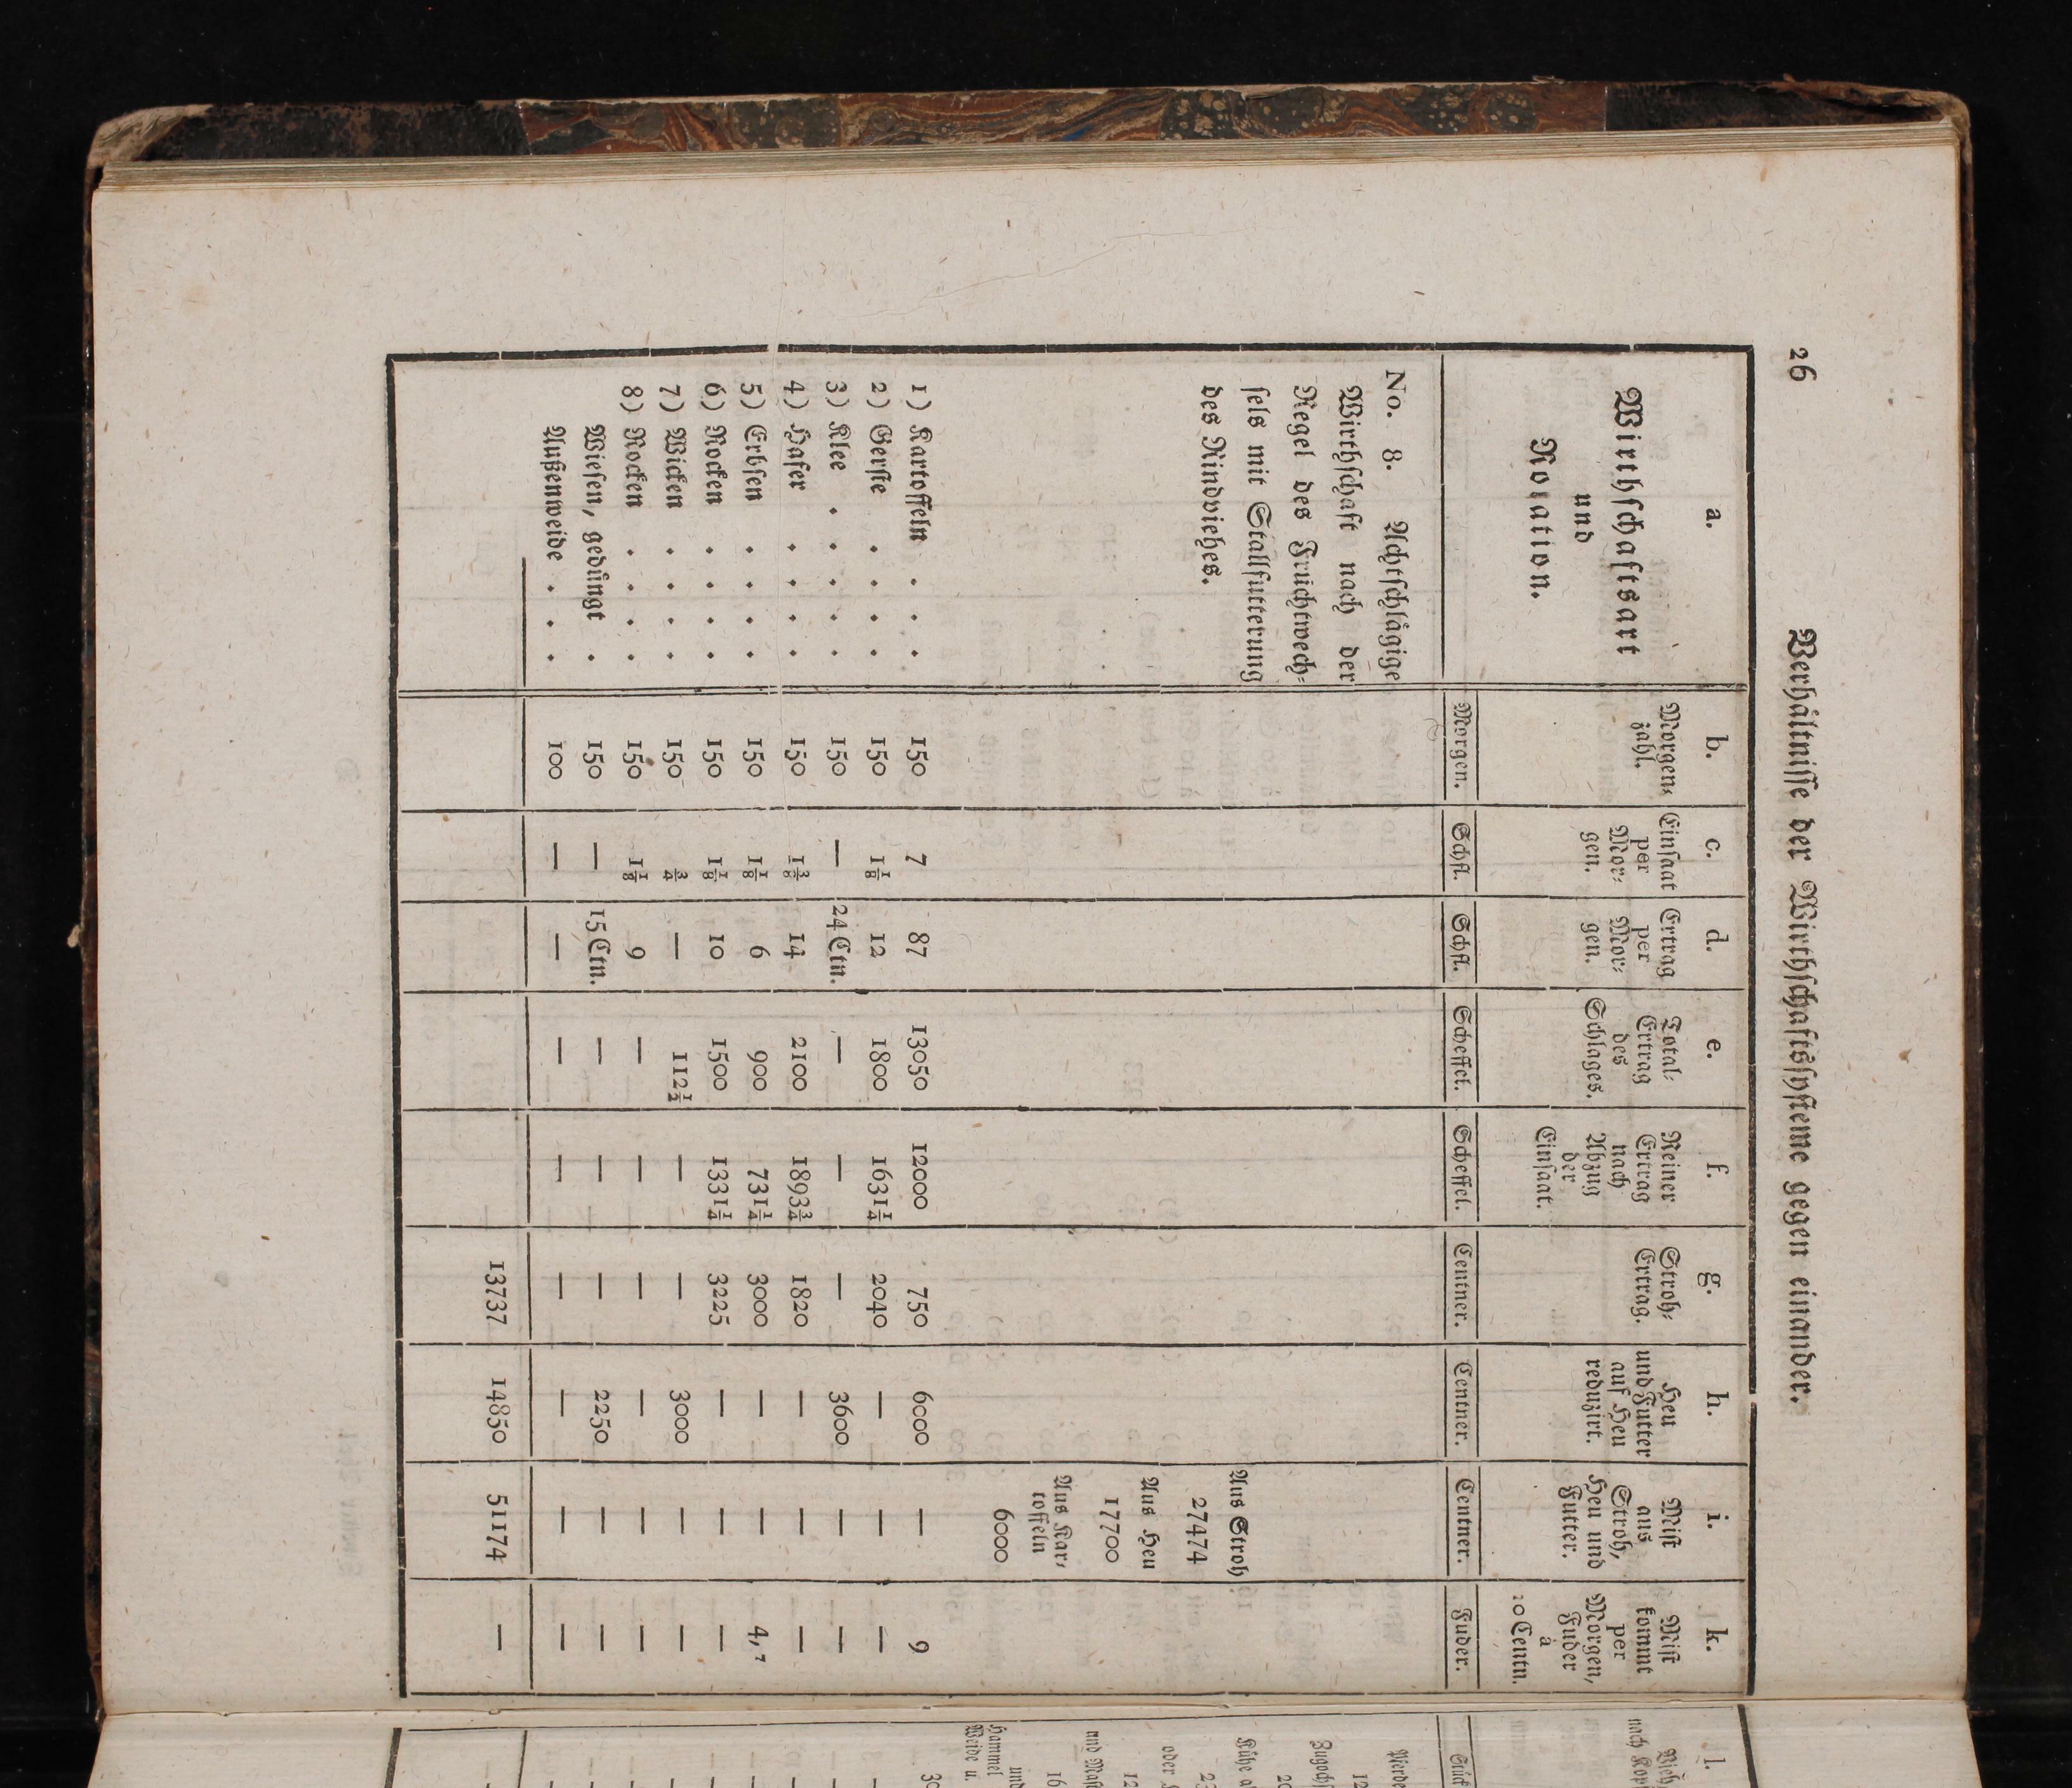 26
Verhältnisse der Wirthschaftssysteme gegen einander.
a. b. c. d. e. f. g. h. i. k.
Wirthschaftsart
und
Rotation.
Morgen-
zahl.
Einsaat
per
Mor-
gen.
Ertrag
per
Mor-
gen.
Total-
Ertrag
des
Schlages.
Reiner
Ertrag
nach
Abzug
der
Einsaat.
Stroh-
Ertrag.
Heu
und Futter
auf Heu
reduzirt.
Mist
aus
Stroh,
Heu und
Futter.
Mist
kommt
per
Morgen,
Fuder
à
20 Centn.
Morgen. Schfl. Schfl. Scheffel. Scheffel. Centner. Centner. Centner. Fuder.
No. 8. Achtschlägige
Wirthschaft nach der
Regel des Fruchtwech-
sels mit Stallfutterung
des Rindviehes.
Aus Stroh
27474
Aus Heu
17700
Aus Kar-
toffeln
6000
1) Kartoffeln . . . 150 7 87 13050 12000 750 6000 — 9
2) Gerste . . . . 150 1⅛ 12 1800 1631¼ 2040 — — —
3) Klee . . . . 150 — 24 Ctn. — — — 3600 — —
4) Hafer . . . . 150 1⅜ 14 2100 1893¾ 1820 — — —
5) Erbsen . . . . 150 1⅛ 6 900 731¼ 3000 — — 4,7
6) Rocken . . . . 150 1⅛ 10 1500 1331¼ 3225 — — —
7) Wicken . . . . 150 ¾ — 112½ — — 3000 — —
8) Rocken . . . . 150 1⅛ 9 — — — — — —
Wiesen, gedüngt . 150 — 15 Ctn. — — — 2250 — —
Außenweide . . . 100 — — — — — — — —
13737 14850 51174 —
l.
Vieh
nach Kop
Stück
Pferde
12
Zugochs
20
Kühe a
23
oder
12
und Mast
16
und
Hammel
Weide u.
30